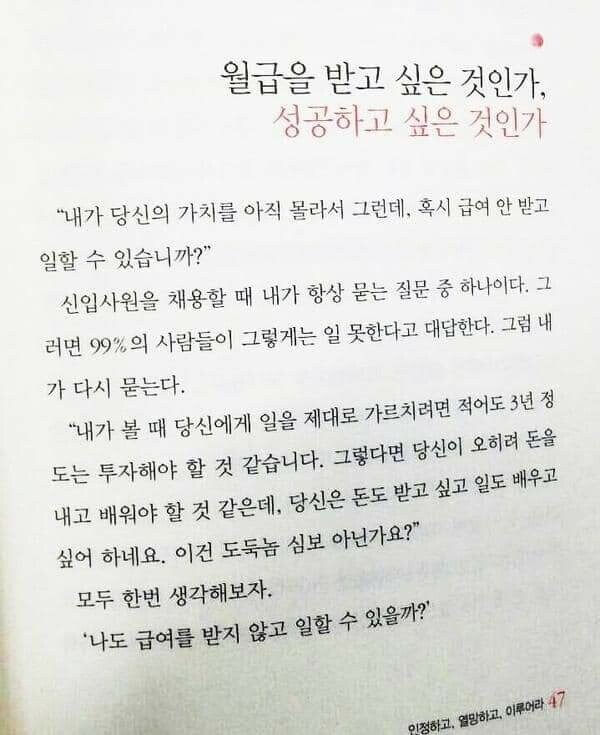 월급을 받고 싶은 것인가,
성공하고 싶은 것인가
“내가 당신의 가치를 아직 몰라서 그런데, 혹시 급여 안 받고
일할 수 있습니까?”
신입사원을 채용할 때 내가 항상 묻는 질문 중 하나이다. 그
러면 99%의 사람들이 그렇게는 일 못한다고 대답한다. 그럼 내
가 다시 묻는다.
“내가 볼 때 당신에게 일을 제대로 가르치려면 적어도 3년 정
도는 투자해야 할 것 같습니다. 그렇다면 당신이 오히려 돈을
내고 배워야 할 것 같은데, 당신은 돈도 받고 싶고 일도 배우고
싶어 하네요. 이건 도둑놈 심보 아닌가요?”
모두 한번 생각해보자.
‘나도 급여를 받지 않고 일할 수 있을까?’
인정하고, 열망하고, 이루어라 47